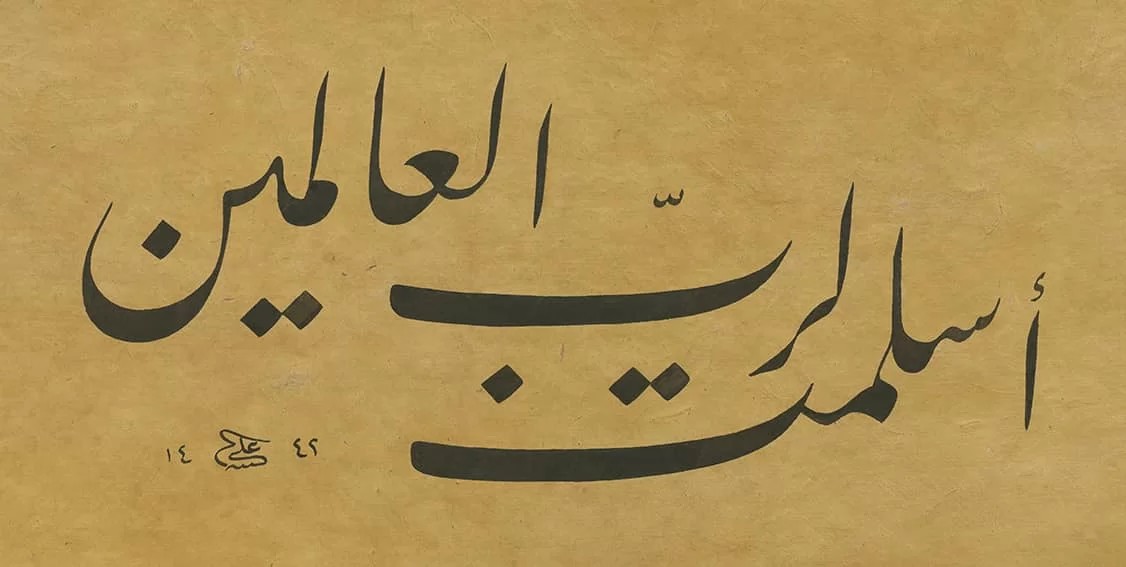 أسلمت لربّ العالمين
١٤ علي ٤٢